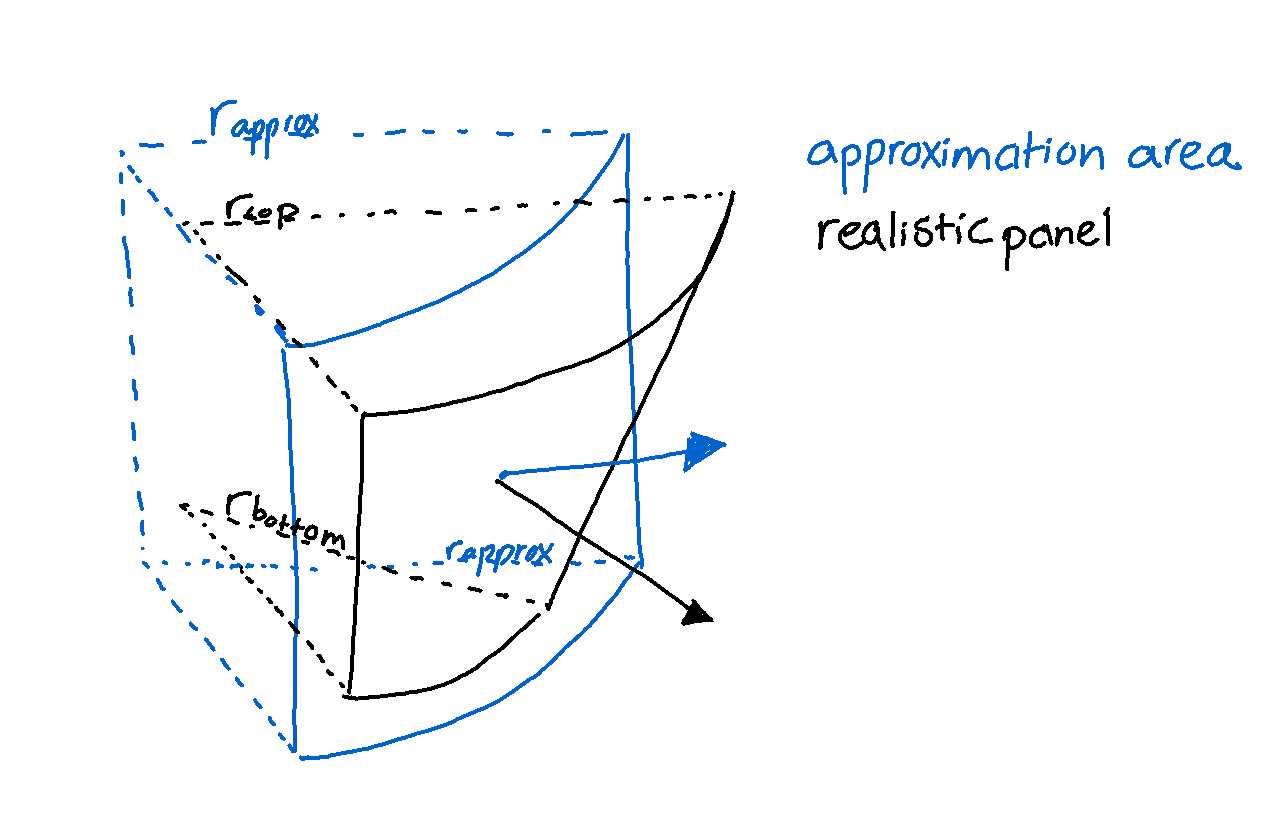 rapprox
approximation area
rtop
realistic panel
rbottom
rapprox